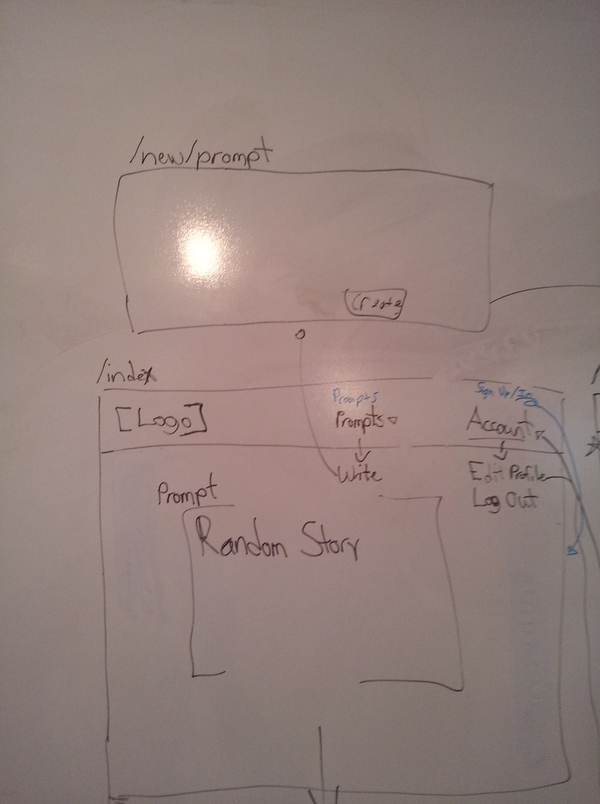 /new/prompt
Create
/index
[Logo]
Prompts
Prompts
Write
Sign Up/
Account
Edit Profile
Log Out
Prompt
Random Story